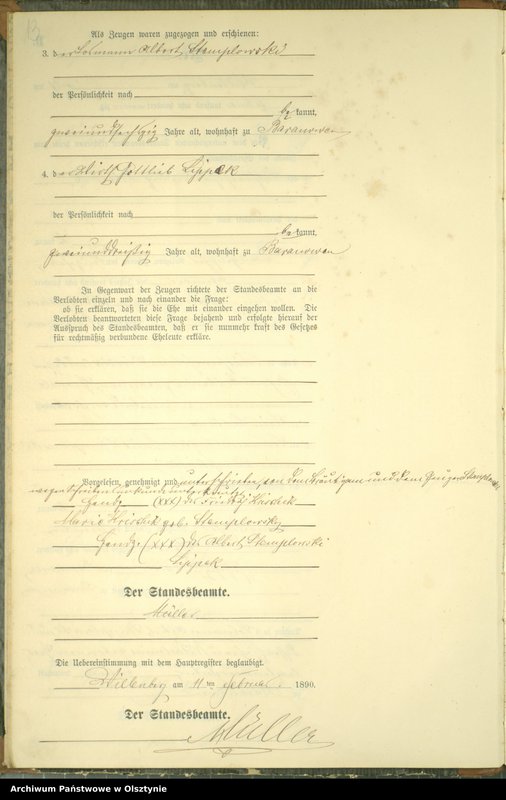 Als Zeugen waren zugezogen und erschienen:
3. der Losmann Albert Stamplowski
der Persönlichkeit nach
bekannt,
zweiundsechzig Jahre alt, wohnhaft zu Baranowen
4. der Wirth Gottlieb Lippek
der Persönlichkeit nach
bekannt,
zweiunddreißig Jahre alt, wohnhaft zu Baranowen
In Gegenwart der Zeugen richtete der Standesbeamte an die
Verlobten einzeln und nach einander die Frage:
ob sie erklären, daß sie die Ehe mit einander eingehen wollen. Die
Verlobten beantworteten diese Frage bejahend und erfolgte hierauf der
Ausspruch des Standesbeamten, daß er sie nunmehr kraft des Gesetzes
für rechtmäßig verbundene Eheleute erkläre.
Vorgelesen, genehmigt und von dem Bräutigam und dem Zeugen Stamplowski
wegen
Handz. (XXX) des Friedrich
Marie geb. Stamplowsky
Handz. (XXX) des Albert Stamplowski
Lippek
Der Standesbeamte.
Müller
Die Uebereinstimmung mit dem Hauptregister beglaubigt.
Willenberg am 11 ten Februar 1890.
Der Standesbeamte.
Müller
Archiwum Państwowe w Olsztynie